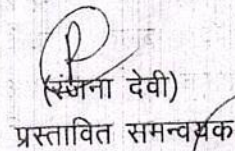 (संजना देवी)
प्रस्तावित समन्वयक